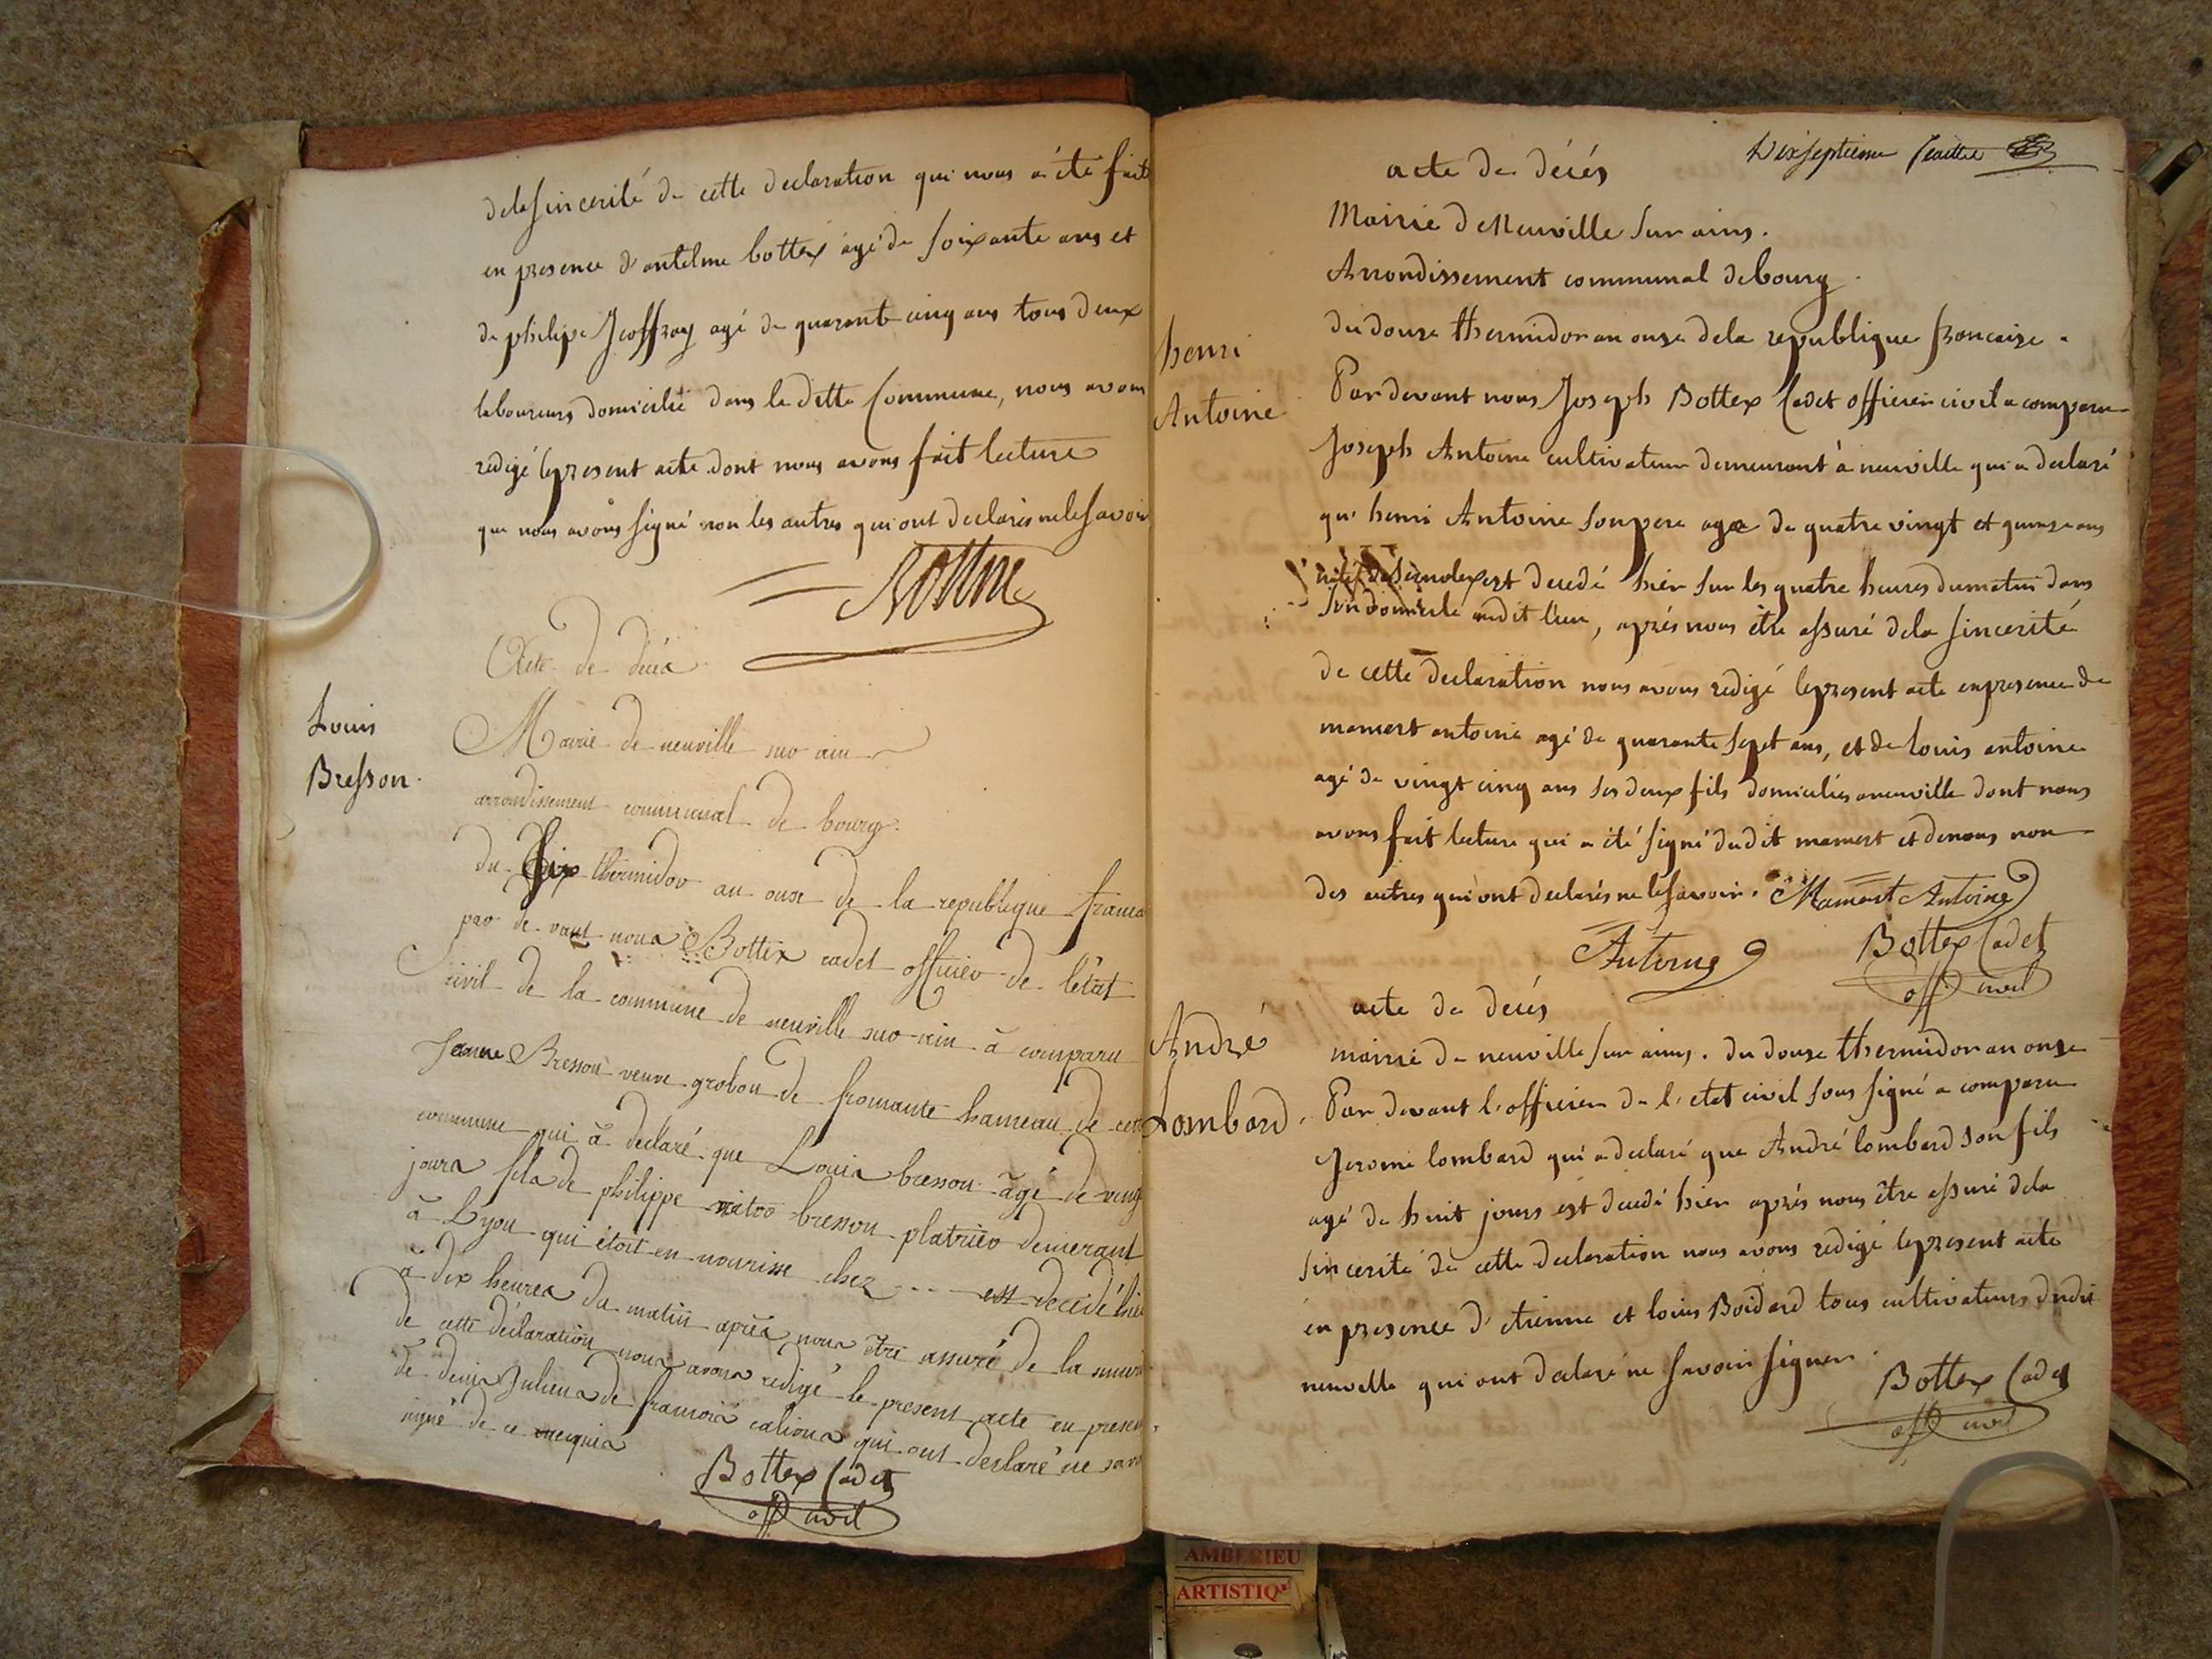 dela sincerité de cette declaration qui nous a été fait
en presence d'antelme bottex agé de soixante ans et
de philipe Jeoffray agé de quarante cinq ans tous deux
laboureurs domicilié dans la ditte Commune, nous avons
redigé le present acte dont nous avons fait lecture
que nous avons signé non les autres qui ont declarés ne le savoir
Acte de décès
Louis
Bresson.
Mairie de neuville sur ain
arrondissement communal de bourg.
du Six thermidor an onze de la republique franca
par de vant nous Bottex cadet officier de l'état
civil de la commune de neuville sur ain à comparu
Jeanne Bresson veuve grobon de fromante hameau de cette
commune qui à declaré que Louis bresson âgé de vingt
jours fils de philippe bresson platrier demerant
à Lyon qui étoit en nourisse chez ... est decidé hier
à dix heures du matin après nous être assuré de la sincéri
de cette déclaration nous avons redigé le present acte en presen
de denis Juliena de francois caliona qui ont declaré ne savo
signé de ce requis
Bottex Cadet
off civil
Dixseptieme feuillet
acte de décés
Mairie de Neuville sur ains.
Arrondissement communal de bourg.
henri
Antoine
du douze thermidor an onze dela republique francaise.
Par devant nous Joseph Bottex Cadet officier civil a comparu
Joseph Antoine cultivateur demeurant à neuville qui a declaré
qu'henri Antoine son pere age de quatre vingt et quinze ans
est decedé hier sur les quatre heures du matin dans
son domicile audit lieu, aprés nous être assuré dela sincerité
de cette declaration nous avons redigé le present acte en presence de
mamert antoine agé de quarante sept ans, et de louis antoine
agé de vingt cinq ans ses deux fils domicilies a neuville dont nous
avons fait lecture qui a été signé dudit mamert et de nous non
des autres qui ont declarés ne le savoir. Mamert Antoine
Antoine Bottex Cadet
off civil
acte de decés
André
Lombard.
mairie de neuville sur ains. du douze thermidor an onze
Par devant l'officier de l'etat civil sous signé a comparu
Jerome lombard qui a declaré que André lombard son fils
agé de huit jours est decedé hier aprés nous être assuré dela
sincerité de cette declaration nous avons redigé le present acte
en presence d'etienne et louis Boidard tous cultivateurs dudit
neuville qui ont declaré ne savoir signer.
Bottex Cadet
off civil
AMBERIEU
ARTISTIQ